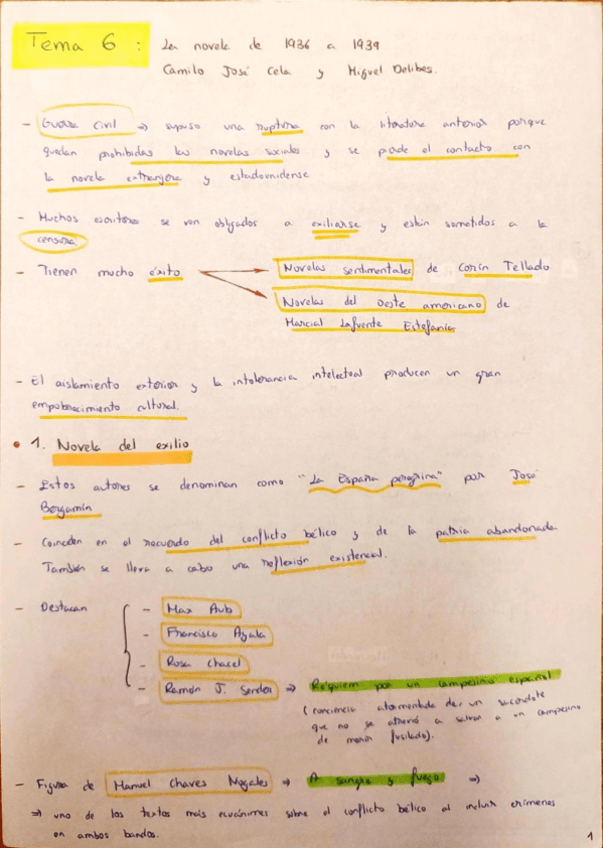 Tema 6 : La novela de 1936 a 1939
Camilo José Cela y Miguel Delibes.
- Guerra Civil => supuso una ruptura con la literatura anterior porque
quedan prohibidas las novelas sociales y se pierde el contacto con
la novela extranjera y estadounidense
- Muchos escritores se ven obligados a exiliarse y están sometidos a la
censura.
- Tienen mucho éxito → Novelas sentimentales de Corín Tellado
→ Novelas del oeste americano de
Marcial Lafuente Estefanía
- El aislamiento exterior y la intolerancia intelectual producen un gran
empobrecimiento cultural.
• 1. Novela del exilio
- Estos autores se denominan como "La España peregrina" por José
Bergamín
- Coinciden en el recuerdo del conflicto bélico y de la patria abandonada.
También se lleva a cabo una reflexión existencial.
- Destacan { - Max Aub
- Francisco Ayala
- Rosa Chacel
- Ramón J. Sender => Réquiem por un campesino español
(conciencia atormentada de un sacerdote
que no se atrevió a salvar a un campesino
de morir fusilado).
- Figura de Manuel Chaves Nogales => A sangre y fuego =>
=> uno de los textos más ecuánimes sobre el conflicto bélico al incluir crímenes
en ambos bandos.
1